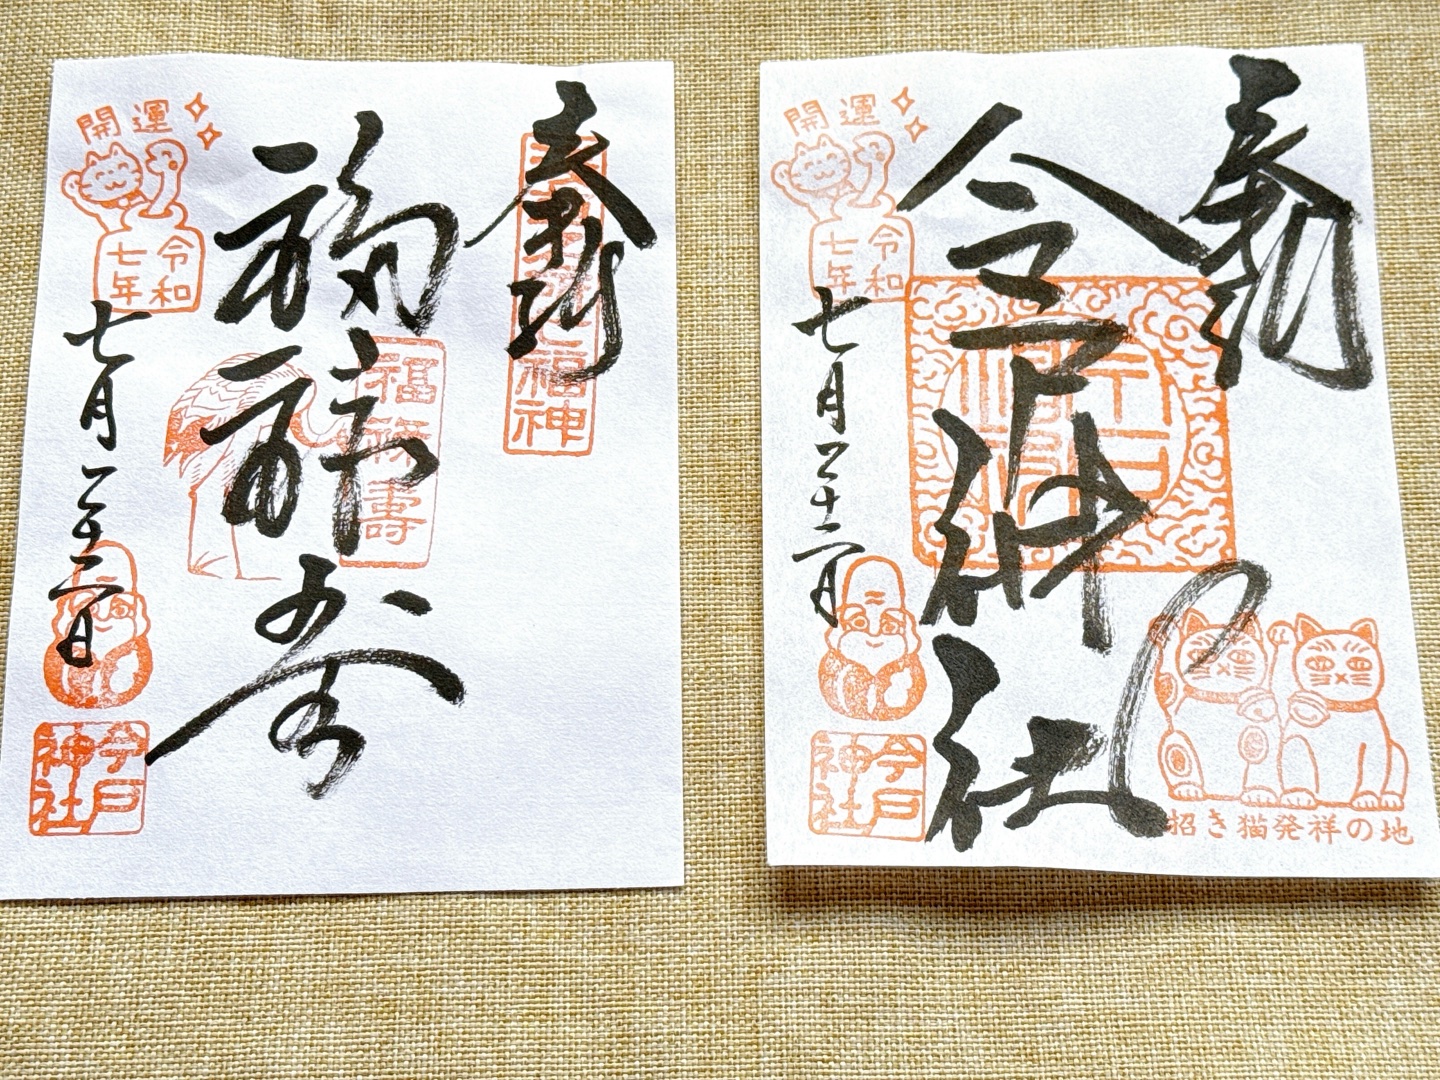 奉拝
福神
福禄寿
福禄寿
開運
令和
七年
七月二十二日
今戸
神社
奉拝
今戸神社
開運
令和
七年
七月二十二日
今戸
神社
招き猫発祥の地